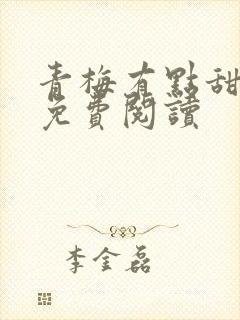 青梅有點甜
免費閱讀
李金磊